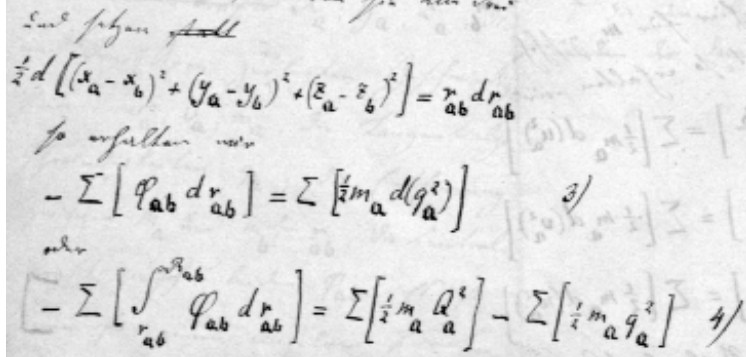 und setzen ~~statt~~
½ d [(x_a - x_b)² + (y_a - y_b)² + (z_a - z_b)²] = r_ab dr_ab
so erhalten wir
- Σ [φ_ab dr_ab] = Σ [½ m_a d(q_a²)] 3)
oder
- Σ [∫_{r_ab}^{R_ab} φ_ab dr_ab] = Σ [½ m_a Q_a²] - Σ [½ m_a q_a²] 4)